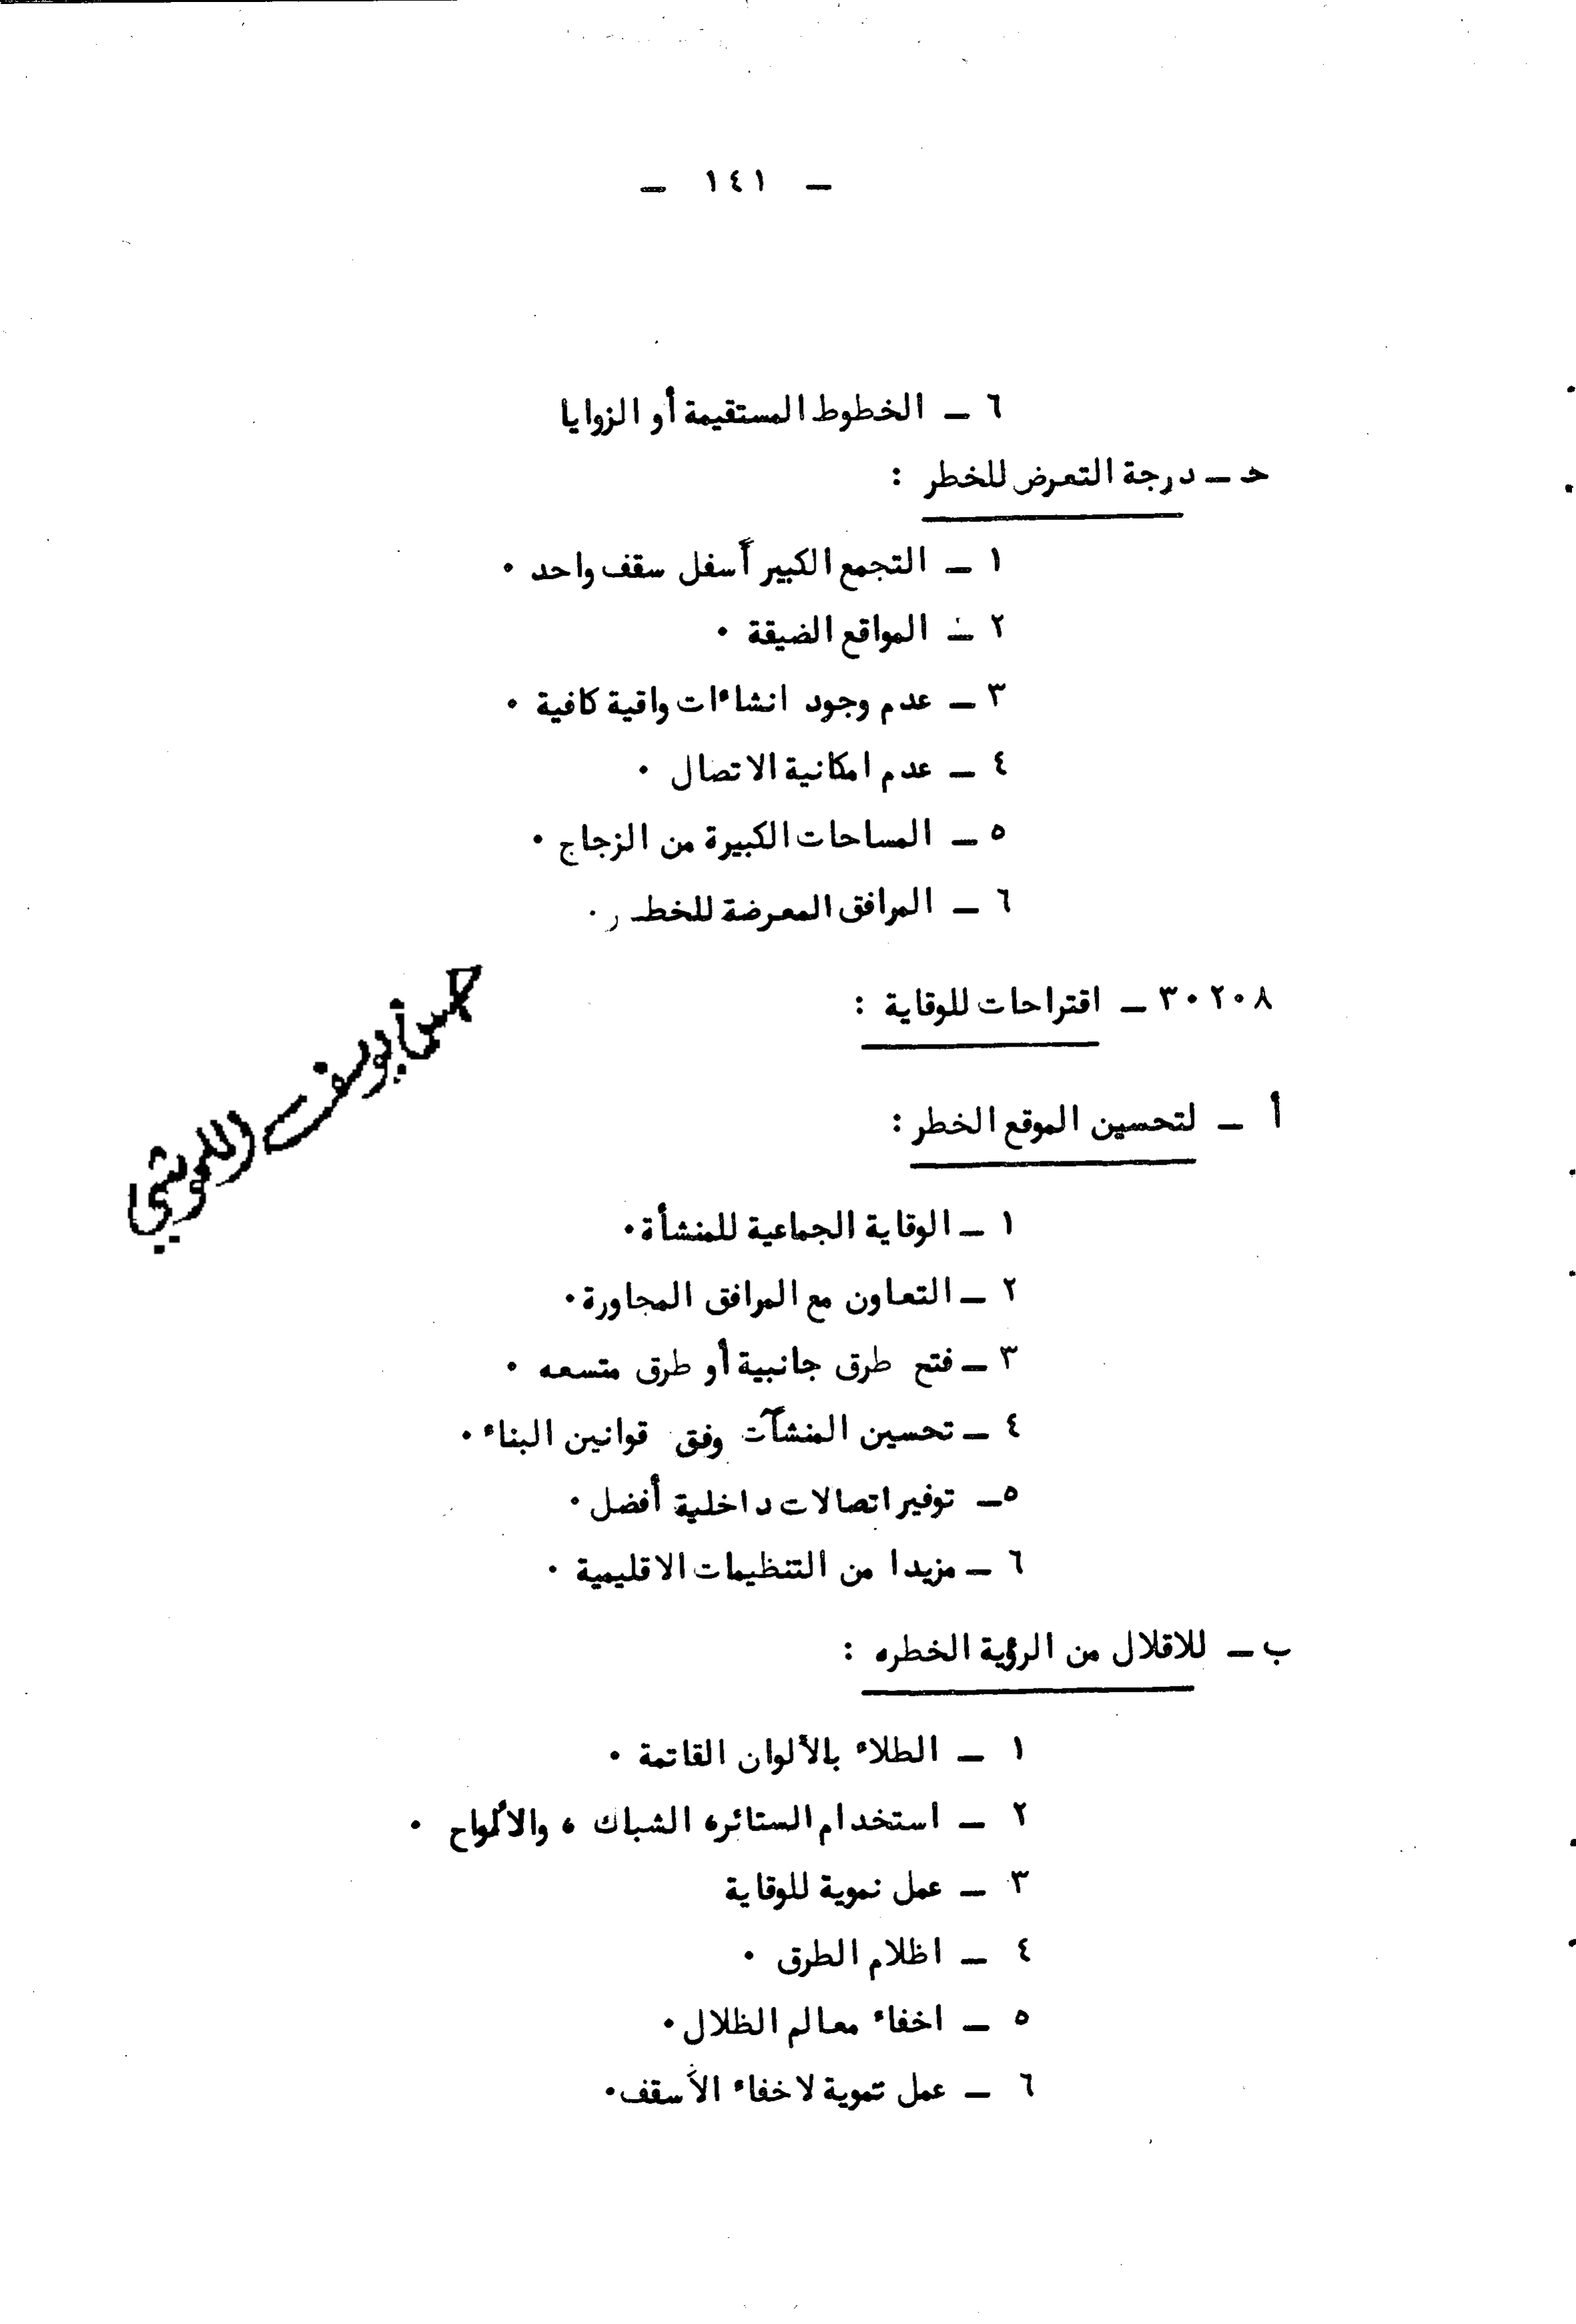 — ١٤١ —
٦ — الخطوط المستقيمة أو الزوايا
حـ — درجة التعرض للخطر :
١ — التجمع الكبير أسفل سقف واحد ٠
٢ — المواقع الضيقة ٠
٣ — عدم وجود انشاءات واقية كافية ٠
٤ — عدم امكانية الاتصال ٠
٥ — المساحات الكبيرة من الزجاج ٠
٦ — المرافق المعرضة للخطر ٠
٣٠٢٠٨ — اقتراحات للوقاية :
أ — لتحسين الموقع الخطر :
١ — الوقاية الجماعية للمنشأة ٠
٢ — التعاون مع المرافق المجاورة ٠
٣ — فتح طرق جانبية أو طرق متسعه ٠
٤ — تحسين المنشآت وفق قوانين البناء ٠
٥ — توفير اتصالات داخلية أفضل ٠
٦ — مزيدا من التنظيمات الاقليمية ٠
ب — للاقلال من الرؤية الخطره :
١ — الطلاء بالألوان القاتمة ٠
٢ — استخدام الستائر، الشباك ، والألواح ٠
٣ — عمل نموية للوقاية
٤ — اظلام الطرق ٠
٥ — اخفاء معالم الظلال ٠
٦ — عمل تموية لاخفاء الأسقف ٠